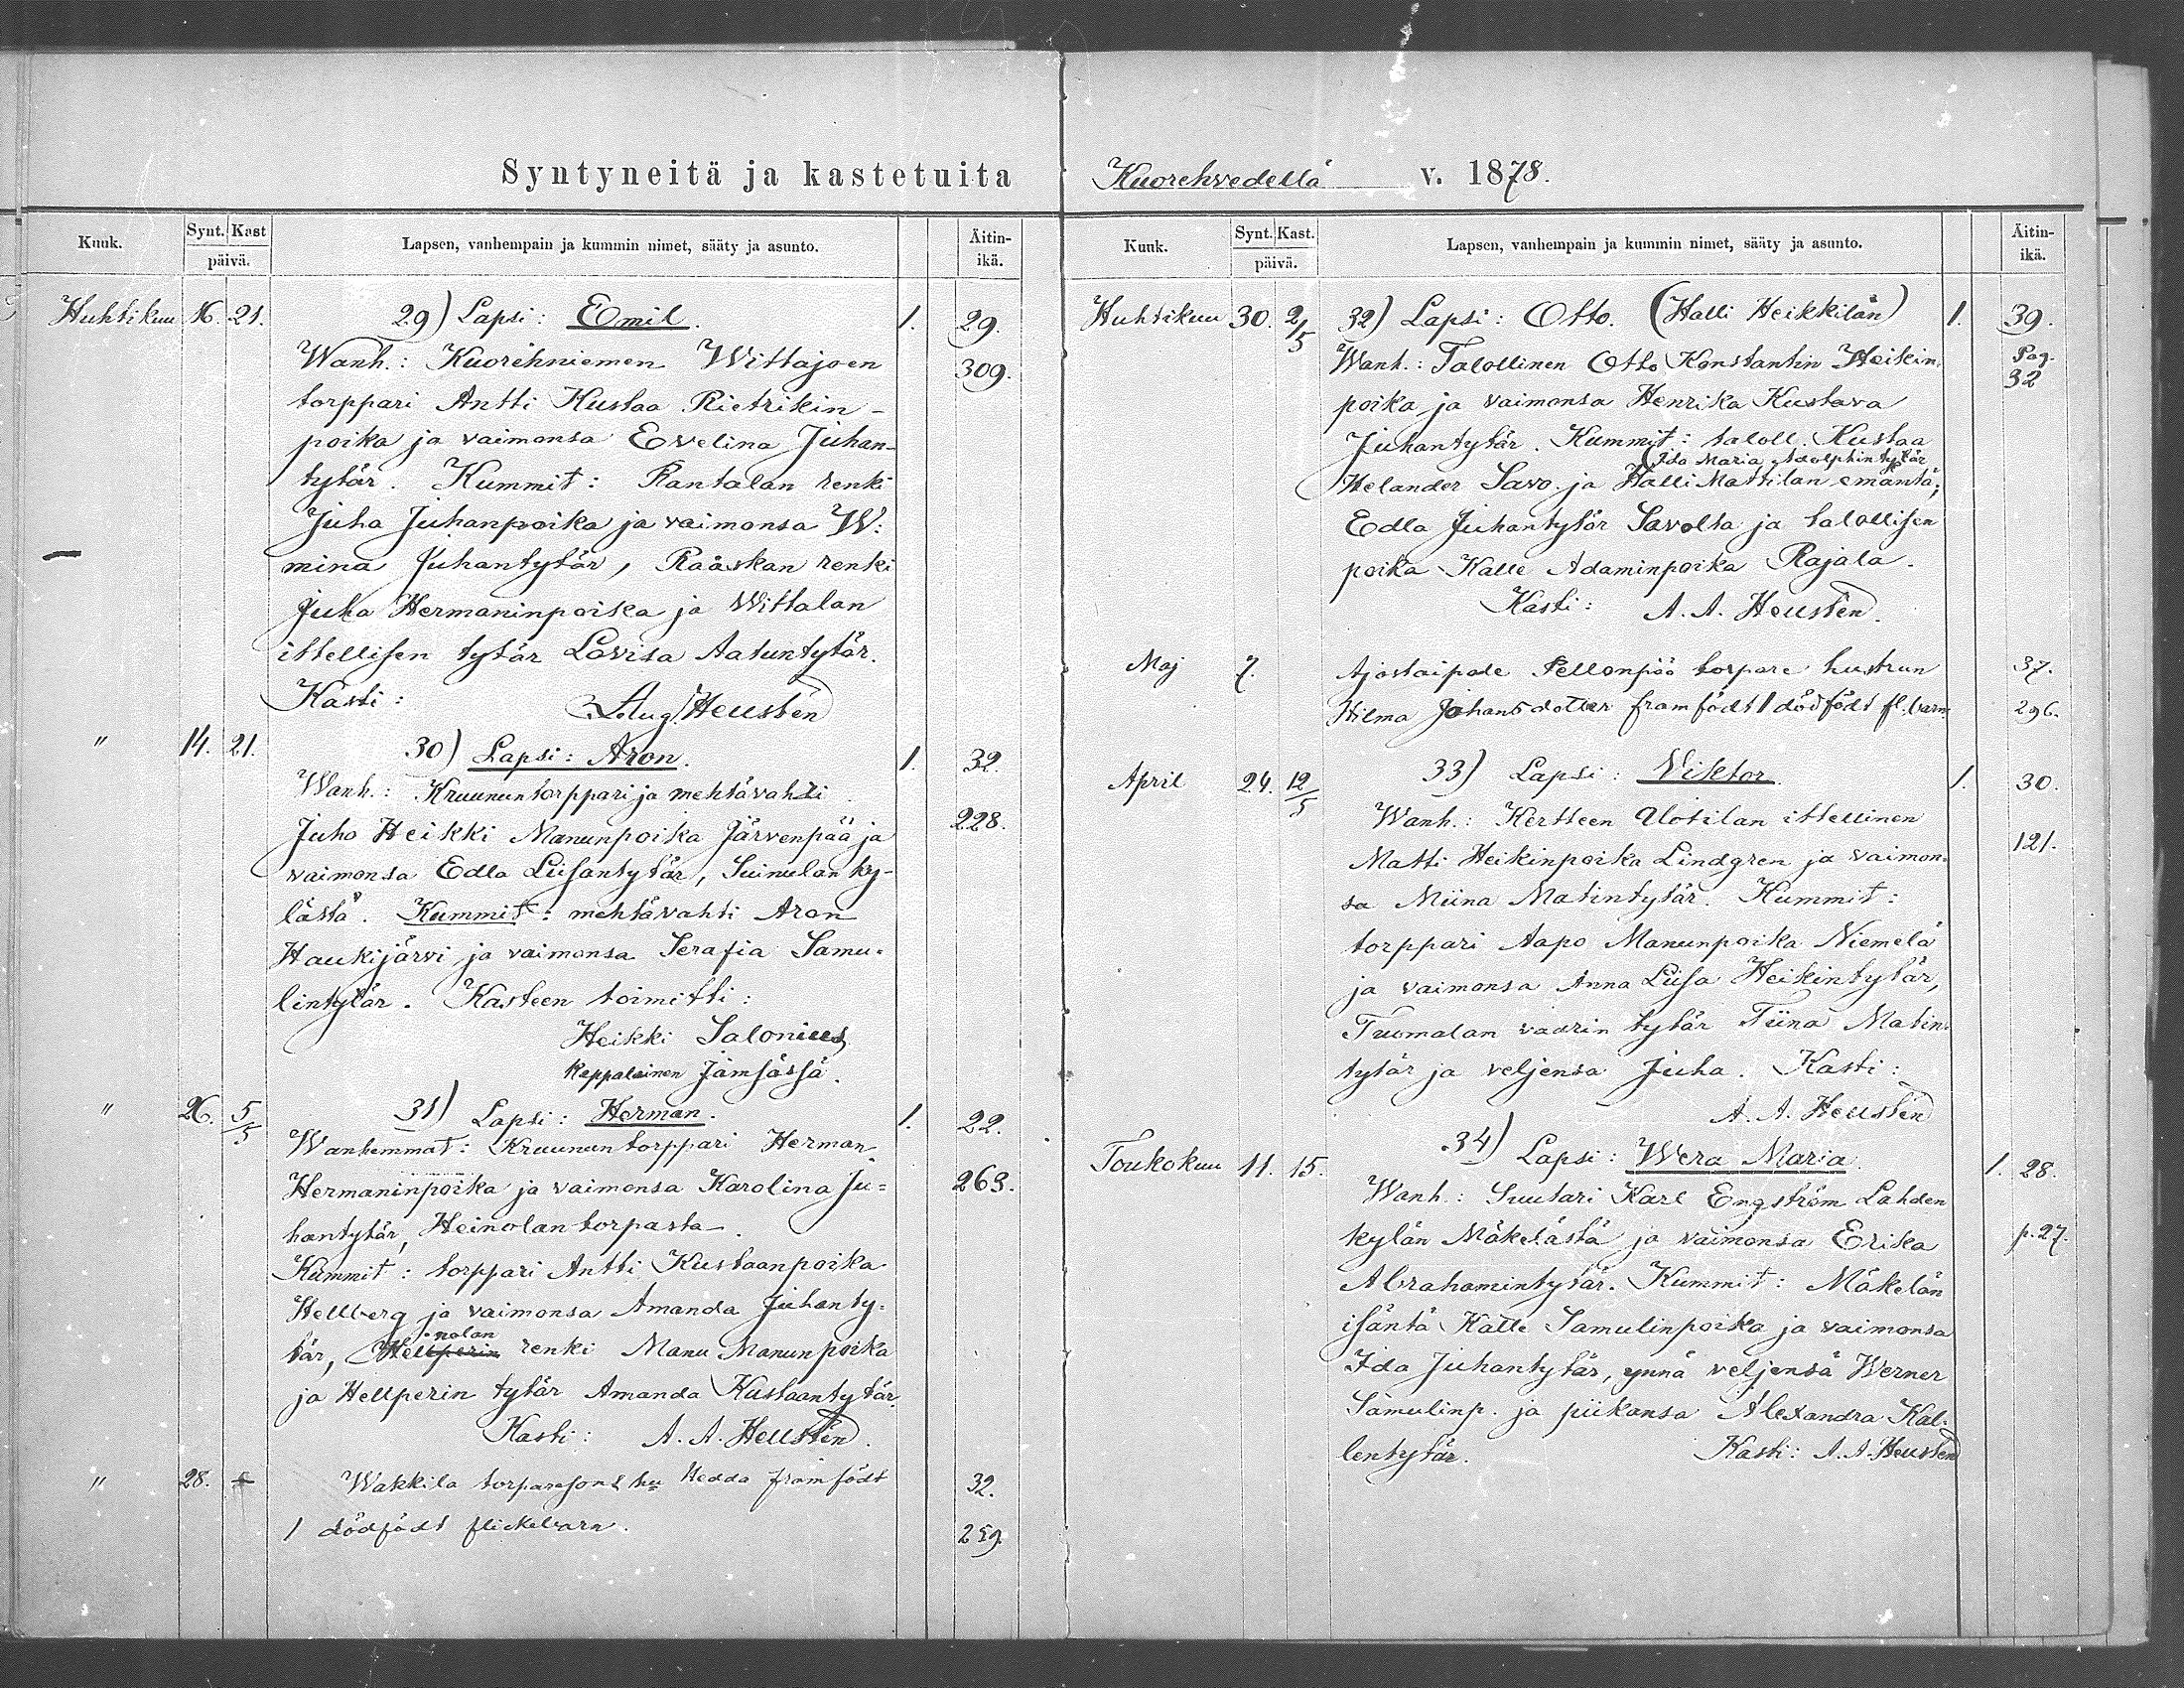 Syntyneitä ja kastetuita Kuorehvedellä v. 1878.
Kuuk.
Synt. Kast
päivä.
Lapsen, vanhempain ja kummin nimet, sääty ja asunto.
Äitin-
ikä.
Huhtikuu 16. 21. 29) Lapsi: Emil. 1. 29.
Wanh.: Kuorehniemen Wittajoen 309.
torppari Antti Kustaa Rietrikin-
poika ja vaimonsa Evelina Juhan-
tytär. Kummit: Rantalan renki
Juha Juhanpoika ja vaimonsa W:
mina Juhantytär, Rååskan renki
Juha Hermaninpoika ja Wittalan
ittellisen tytär Lovisa Aatuntytär.
Kasti: Aug. Hellstén
" 14. 21. 30) Lapsi: Aron. 1. 32.
Wanh.: Kruununtorppari ja mehtävahti
Juho Heikki Manunpoika Järvenpää ja 228.
vaimonsa Edla Liisantytär, Suinulan ky-
lästä. Kummit: mehtävahti Aron
Haukijärvi ja vaimonsa Serafia Samu-
lintytär. Kasteen toimitti:
Heikki Salonius
kappalainen Jämsässä.
" 26. 5/5 31) Lapsi: Herman. 1. 22.
Wanhemmat: Kruunun torppari Herman
Hermaninpoika ja vaimonsa Karolina Ju- 263.
hantytär, Heinolan torpasta
Kummit: torppari Antti Kustaanpoika
Hellberg ja vaimonsa Amanda Juhanty-
nolan
tär, Hellperin renki Manu Manunpoika
ja Hellperin tytär Amanda Kustaantytär.
Kasti: A. A. Hellstén.
" 28. + Wakkila torpareson hu Hedda framfödt 32.
1 dödfödt flickebarn. 259.
Kuuk.
Synt. Kast.
päivä.
Lapsen, vanhempain ja kummin nimet, sääty ja asunto.
Äitin-
ikä.
Huhtikuu 30. 2/5 32) Lapsi: Otto. (Halli Heikkilän) 1. 39.
Wanh.: Talollinen Otto Konstantin Heikin- Pag.
32
poika ja vaimonsa Henrika Kustava
Juhantytär. Kummit: taloll. Kustaa
(Ida Maria Adolphintytär
Helander Savo ja Halli Mattilan emäntä;
Edla Juhantytär Savolta ja talollisen
poika Kalle Adaminpoika Rajala.
Kasti: A. A. Hellstén.
Maj 7. Ajostaipale Pellonpää torpare hustrun 37.
Hilma Johansdotter framfödt 1 dödfödt fl. barn. 296.
April 24. 12/5 33) Lapsi: Viktor 1. 30.
Wanh.: Kertteen Uotilan ittellinen
Matti Heikinpoika Lindgren ja vaimon- 121.
sa Miina Matintytär. Kummit:
torppari Aapo Manunpoika Niemelä
ja vaimonsa Anna Liisa Heikintytär,
Tuomalan vaarin tytär Tiina Matin-
tytär ja veljensä Juha. Kasti:
A. A. Hellstén
Toukokuu 11. 15. 34) Lapsi: Wera Maria 1. 28.
Wanh.: Suutari Karl Engström Lahden
kylän Mäkelästä ja vaimonsa Erika p. 27.
Abrahamintytär. Kummit: Mäkelän
isäntä Kalle Samulinpoika ja vaimonsa
Ida Juhantytär, ynnä veljensä Werner
Samulinp. ja piikansa Alexandra Kal-
lentytär. Kasti: A. A. Hellstén